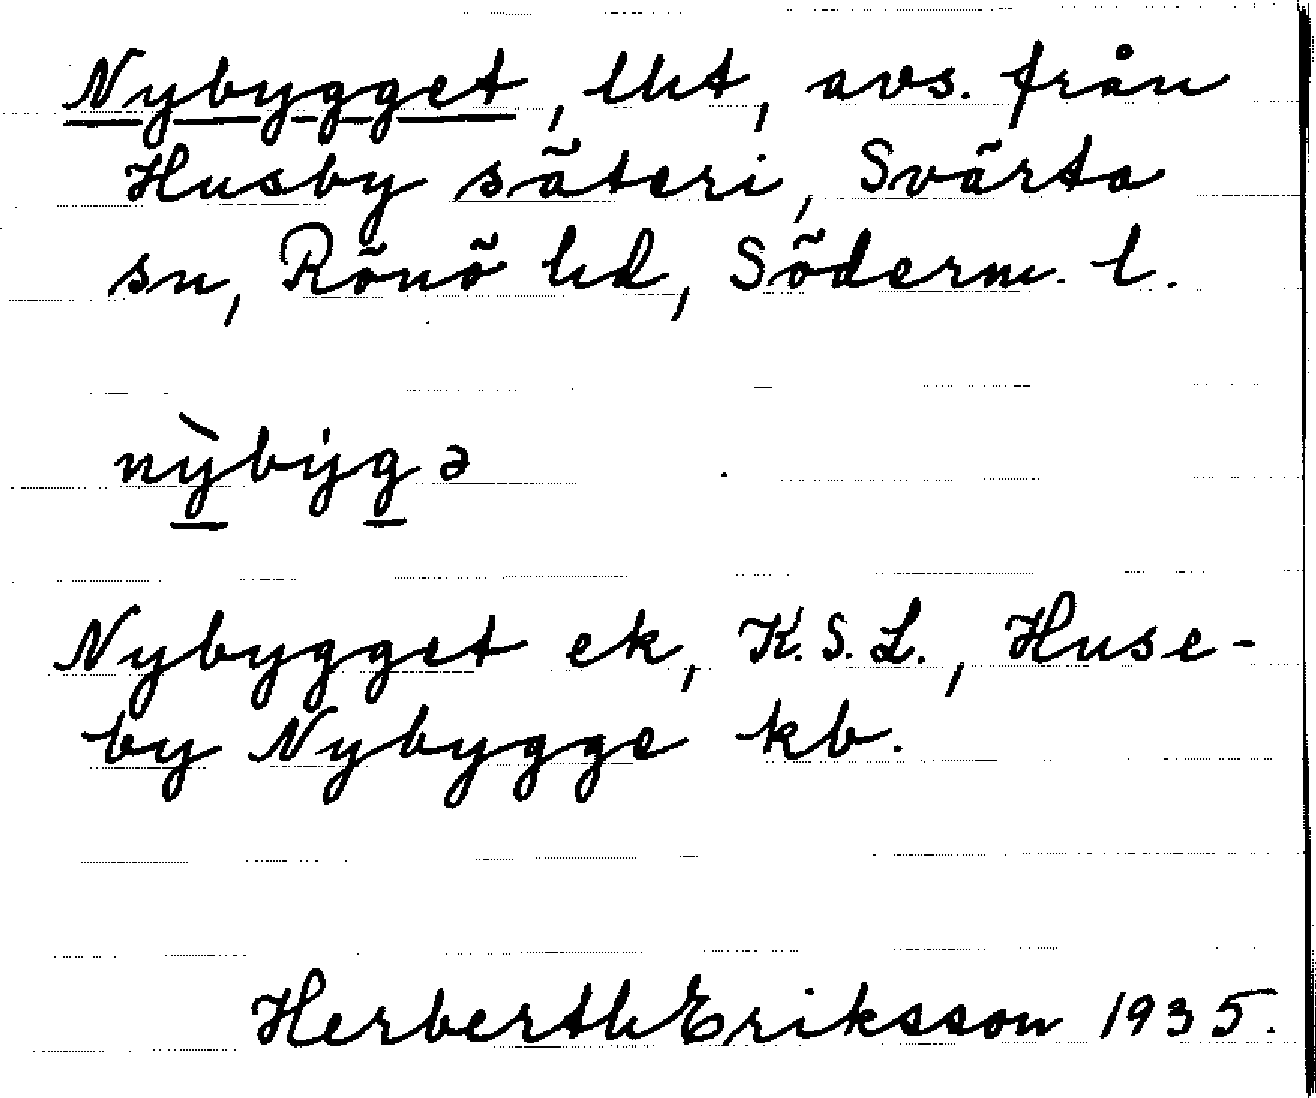 Nybygget, lht, avs. från
Husby säteri, Svärta
sn, Rönö hd, Söderm. l.
nỳbẏgə
Nybygget ek, K.S.L., Huse-
by Nybygge kb.
Herberth Eriksson 1935.